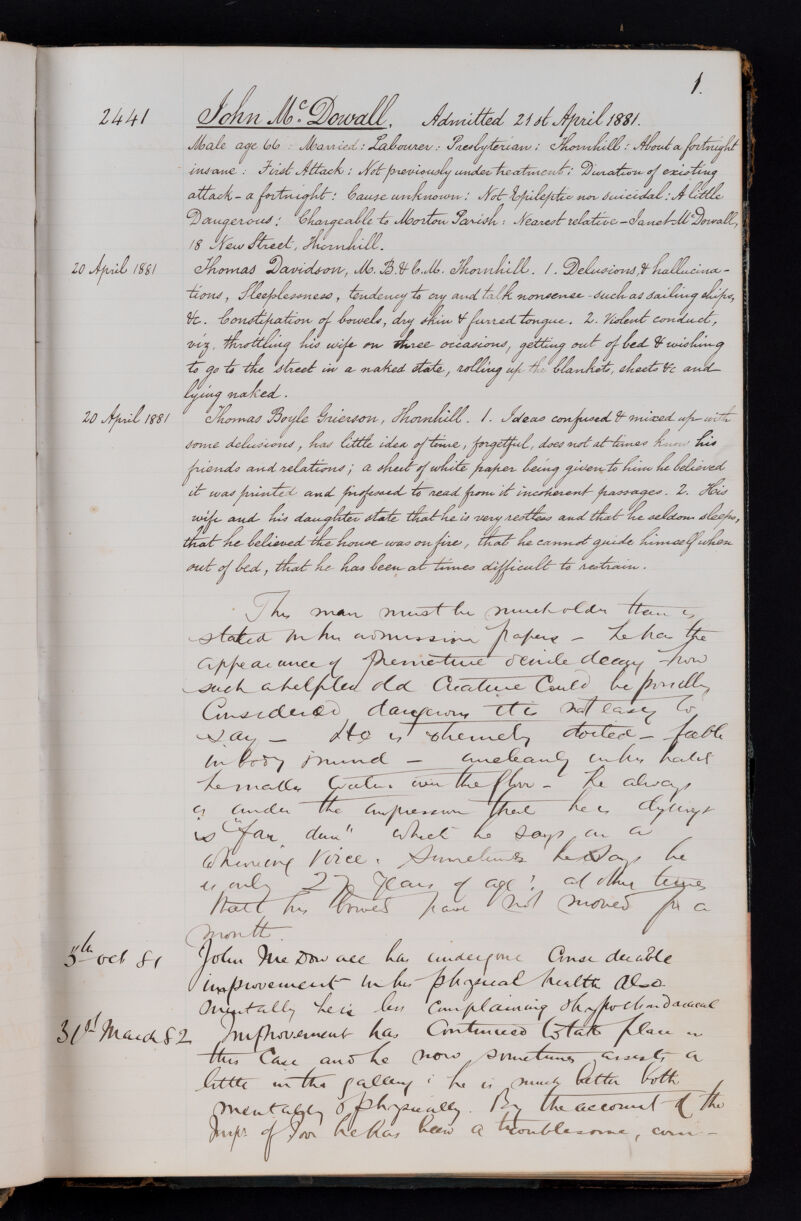 1.
2441 John McDowall. Admitted 21st April 1881.
Male age 66 : Married : Labourer : Presbyterian : Thornhill : About a fortnight
insane : First Attack : Not previously under treatment : Duration of existing
attack - a fortnight : Cause unknown : Not Epileptic nor suicidal : A little
Dangerous : Chargeable to Morton Parish : Nearest relative - Janet McDowall,
18 New Street, Thornhill.
20 April 1881 Thomas Davidson, M.B. & C.M. Thornhill. 1. Delusions, & hallucina-
tions, Sleeplessness, tendency to cry and talk nonsense - such as sailing ships,
&c. Constipation of bowels, dry skin & furred tongue. 2. Violent conduct,
viz. throttling his wife on three occasions, getting out of bed & wishing
to go to the street in a naked state, rolling up the blankets, sheets &c and
lying naked.
20 April 1881 Thomas Boyle Grierson, Thornhill. 1. Ideas confused & mixed up with
some delusions, has little idea of time, forgetful, does not at times know his
friends and relations; a sheet of white paper being given to him he believed
it was printed and professed to read from it incoherent passages. 2. His
wife and his daughter state that he is very restless and that he seldom sleeps,
that he believed the house was on fire, that he cannot guide himself when
out of bed, that he has been at times difficult to restrain.
This man must be much older than is
stated in his admission papers - he has the
appearance of premature senile decay - how
such a helpless old creature could be possibly
considered dangerous it is not easy to
say - He is extremely doited - feeble
in body & mind - uncleanly in his habits
he makes water over the floor - he always
is under the impression that he is dying &
is "far dune" which he says in a
whining voice. Sometimes he says he
is only 27 years of age! at other times
that his bowels have not moved for a
month
5th Oct 81 John McDowall has undergone considerable
improvement in his physical health also
mentally he is less complaining & hypochondriacal
31st March 82 Improvement has continued to take place in
this case and he now sometimes assists a
little in the gallery : he is much better both
mentally & physically. By the account of the
Inspr of Poor he has been a troublesome, com-